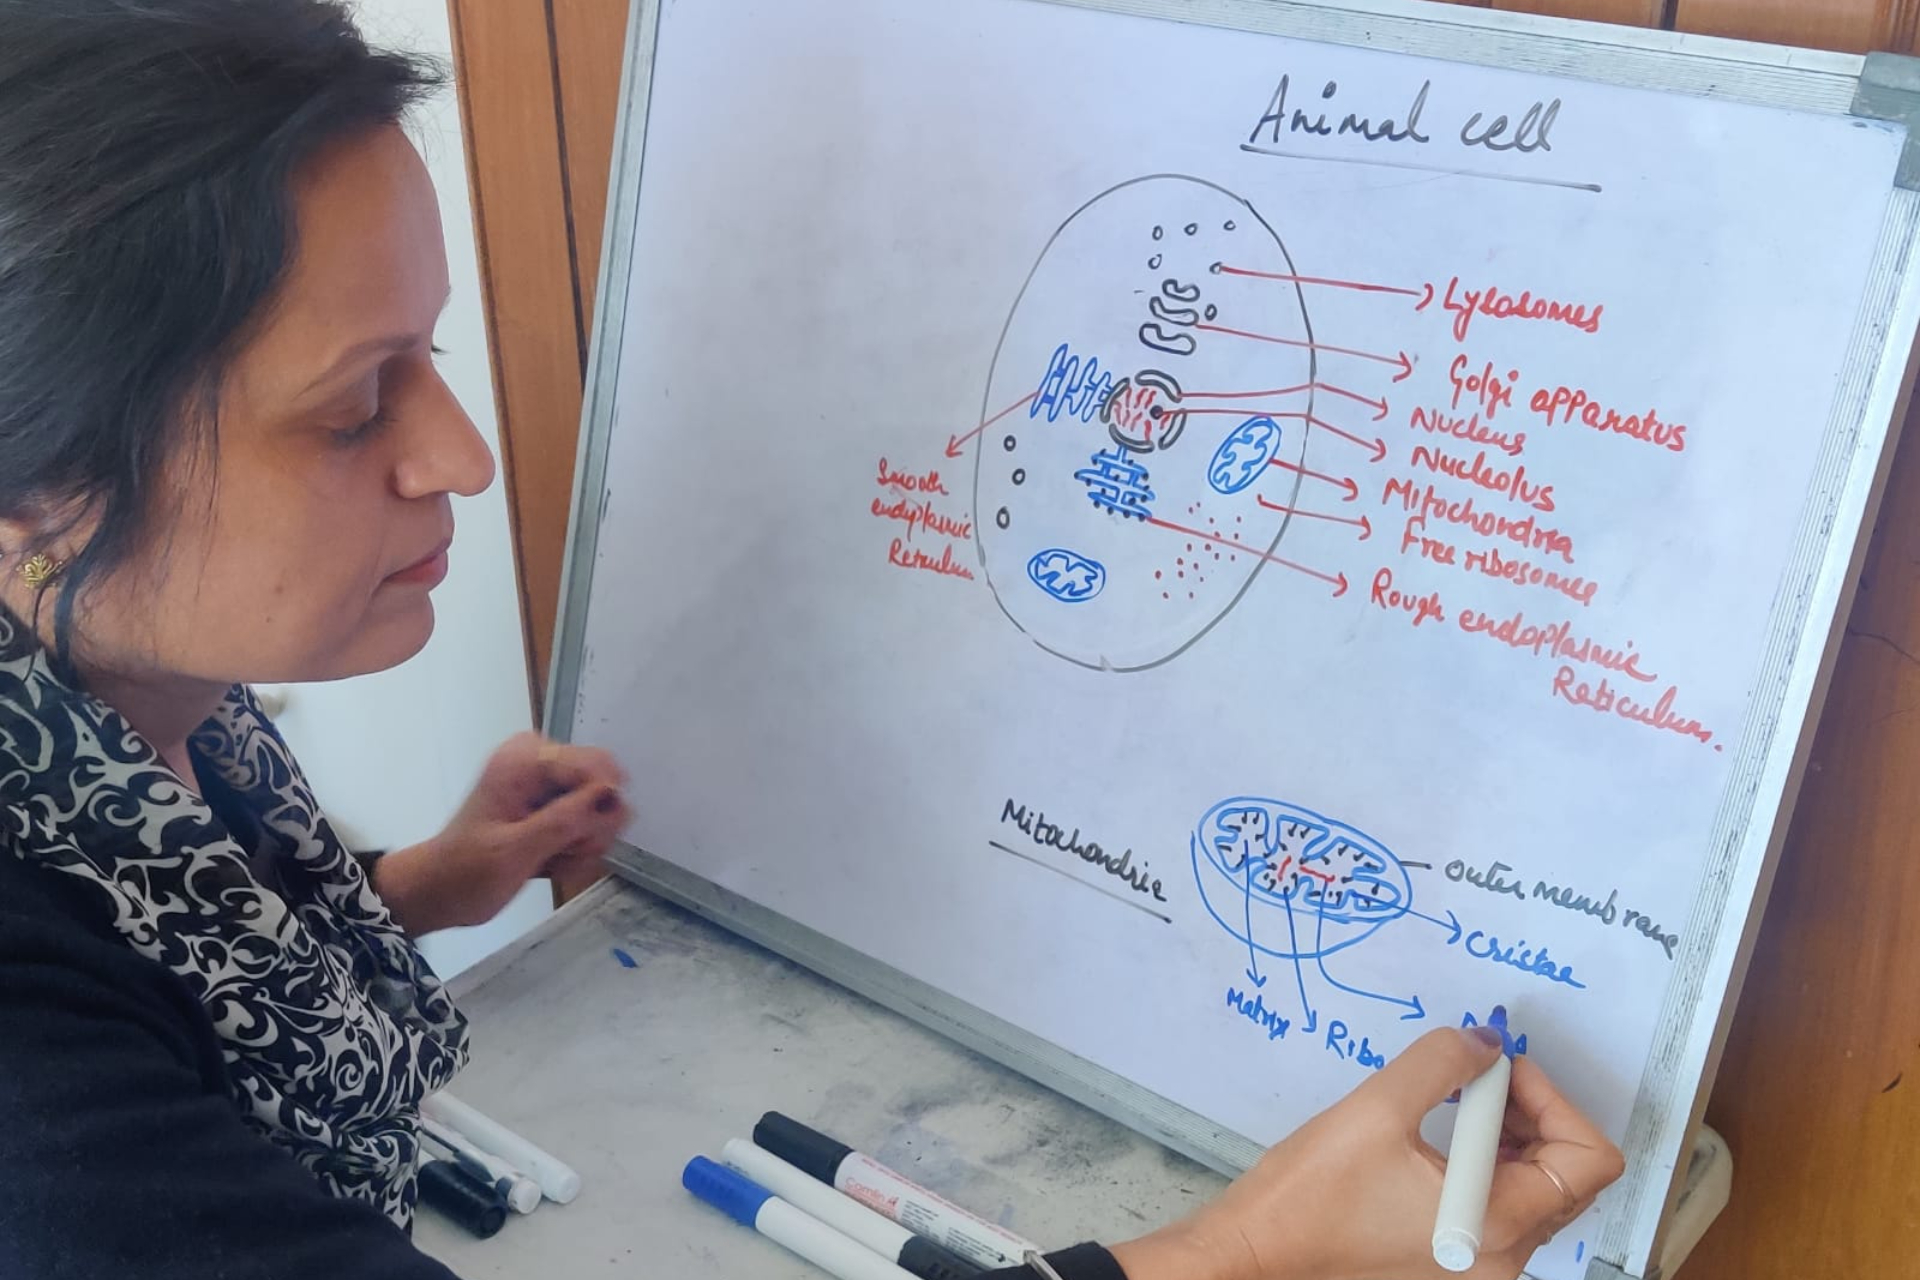 Animal cell
Lysosomes
Golgi apparatus
Nucleus
Nucleolus
Mitochondria
Free ribosomes
Rough endoplasmic
Reticulum.
Smooth
endoplasmic
Reticulum
Mitochondria
outer membrane
cristae
Matrix
Ribo
Camlin